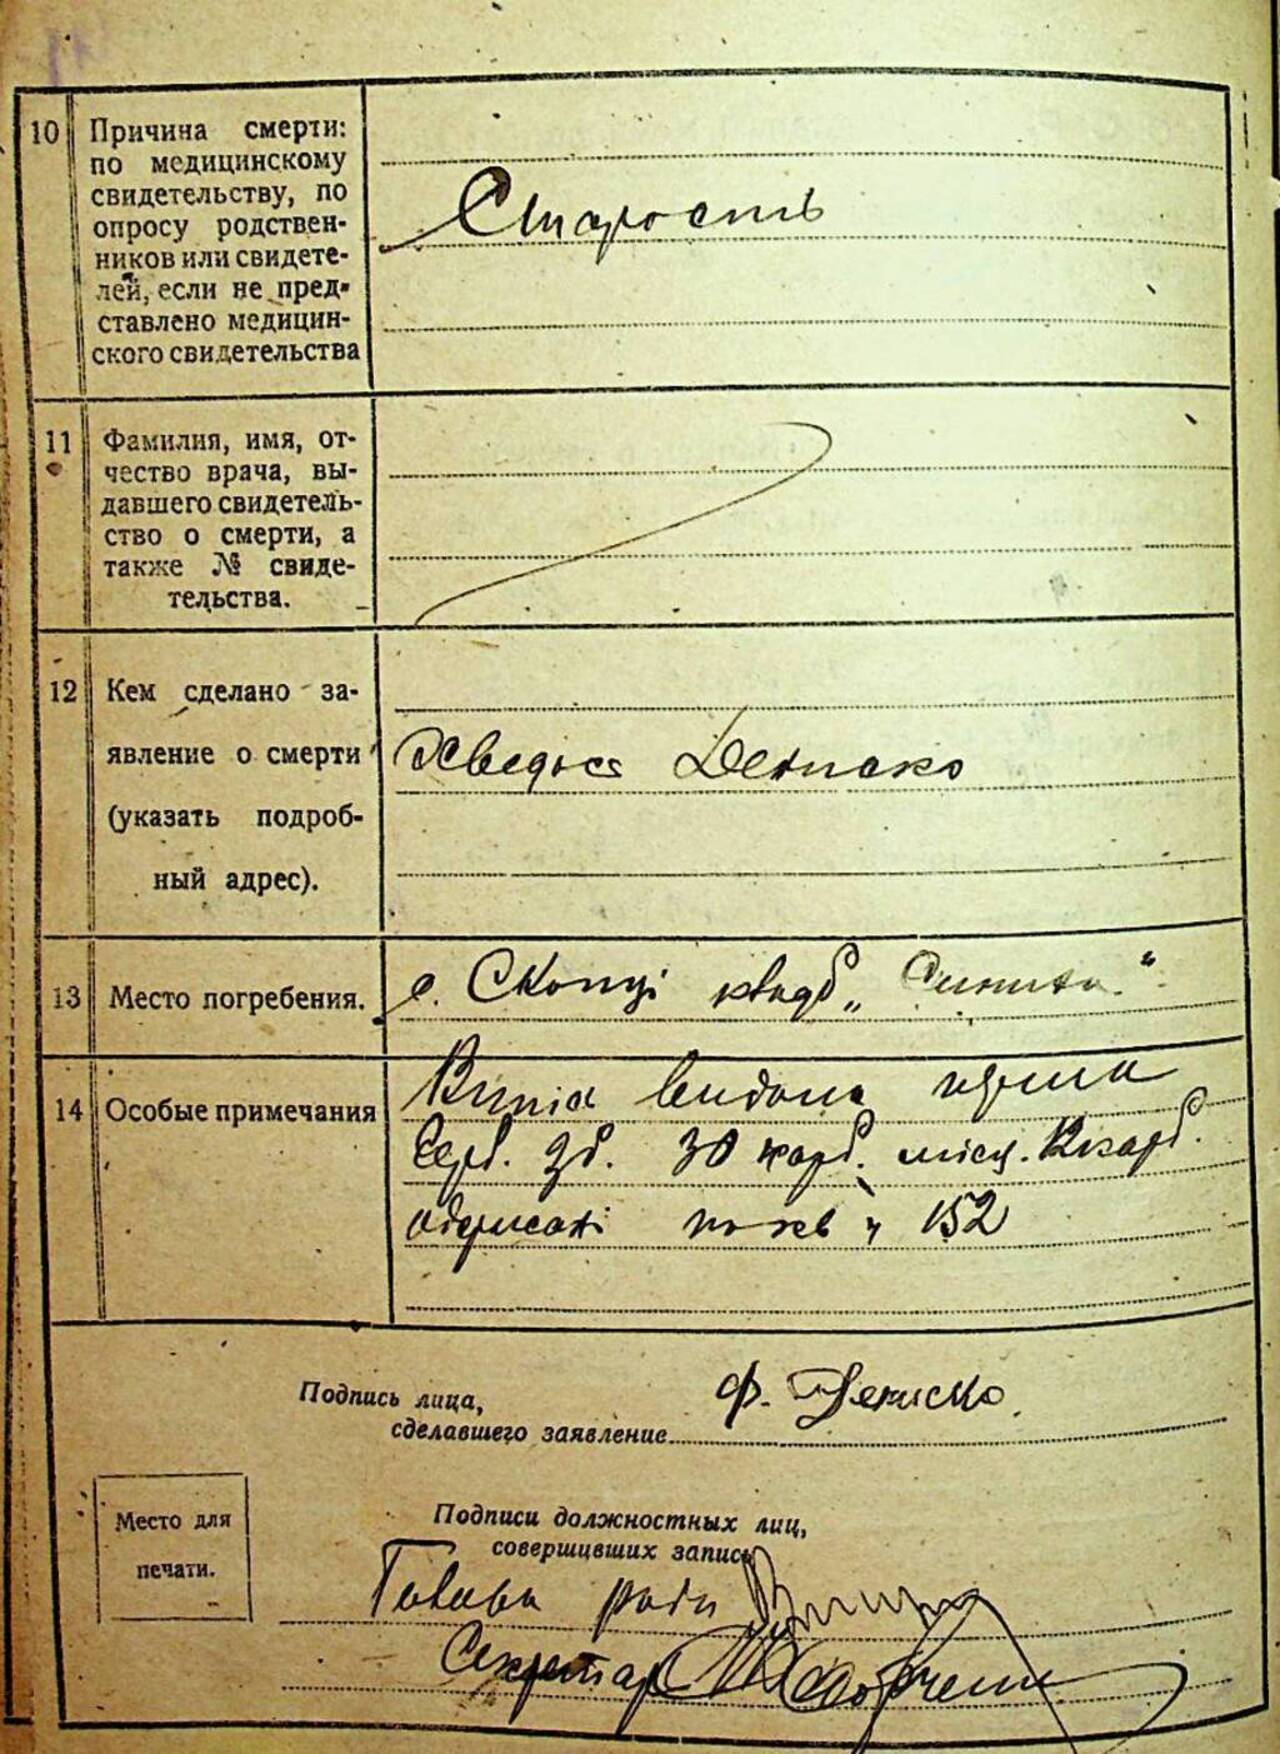 10 Причина смерти:
по медицинскому
свидетельству, по
опросу родствен-
ников или свидете-
лей, если не пред-
ставлено медицин-
ского свидетельства
Старость
11 Фамилия, имя, от-
чество врача, вы-
давшего свидетель-
ство о смерти, а
также № свиде-
тельства.
12 Кем сделано за-
явление о смерти
(указать подроб-
ный адрес).
Дениско
13 Место погребения.
с. Скопці кладб „
14 Особые примечания
видана
30 карб. місц.
152
Подпись лица,
сделавшего заявление
Ф. Дениско
Место для
печати.
Подписи должностных лиц,
совершивших запись
Голова ради
Секретар